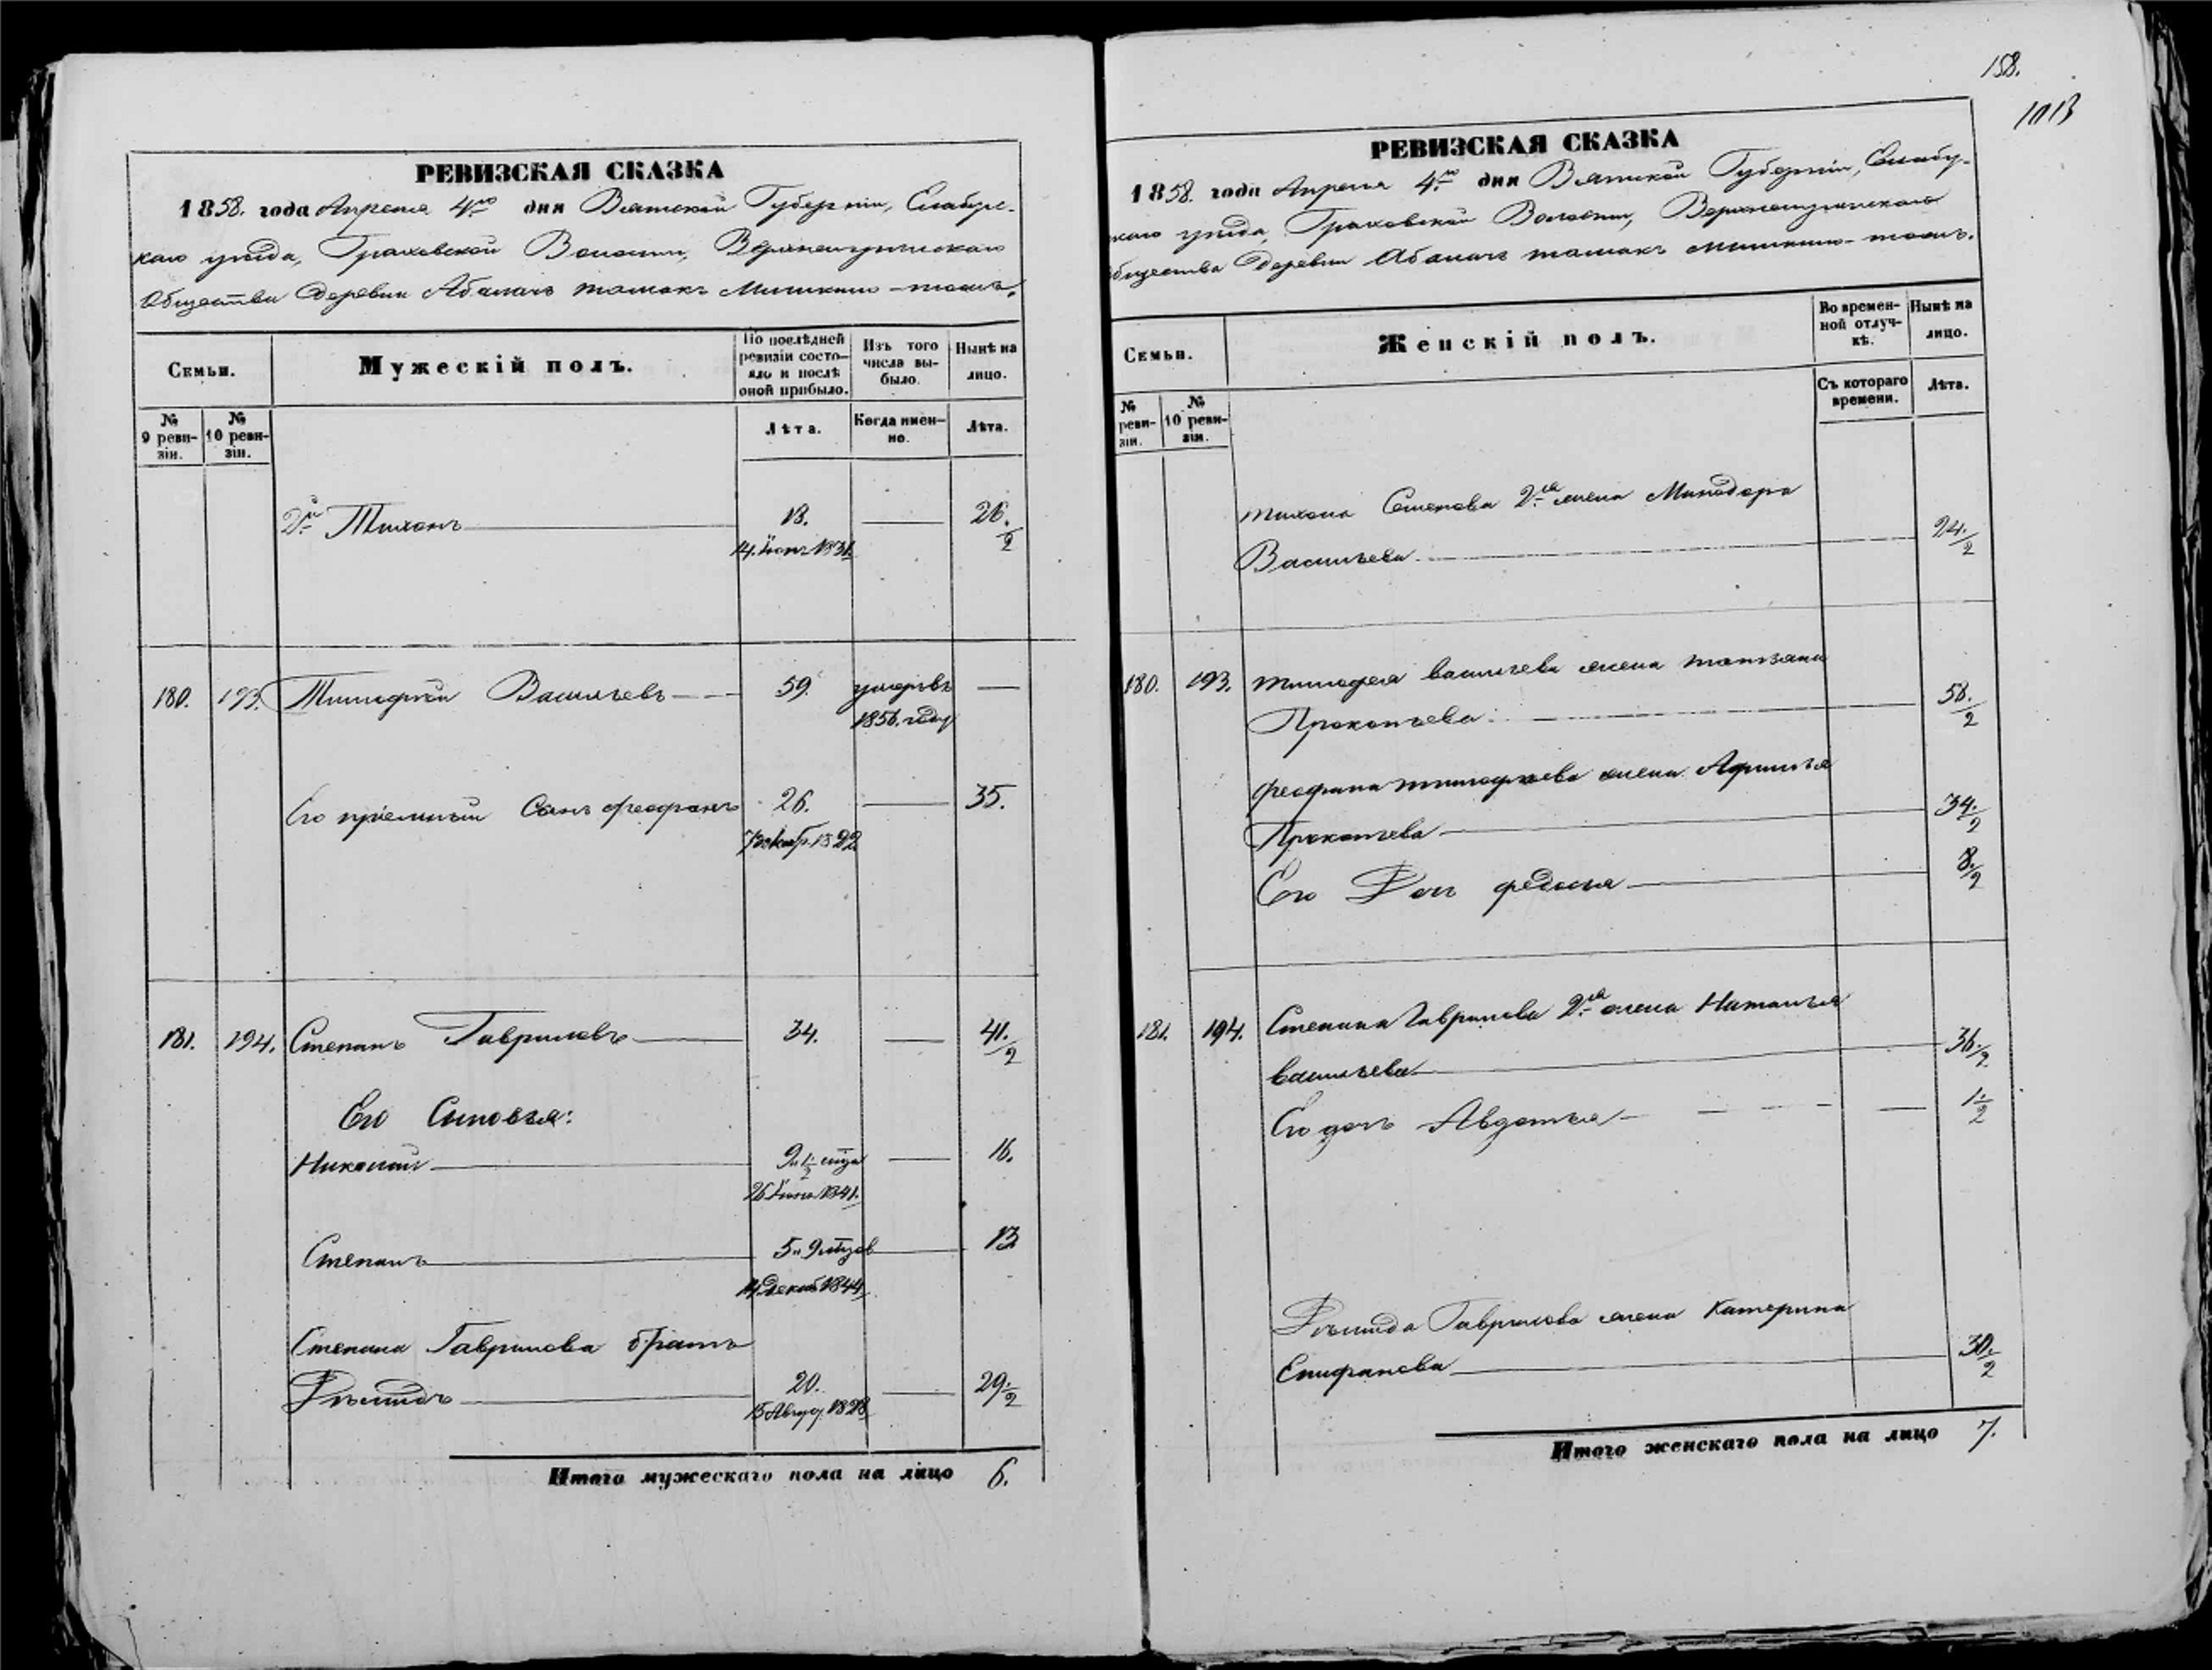 158.
1013
РЕВИЗСКАЯ СКАЗКА
1858. года Апреля 4го дня Вятской Губерніи, Елабуж-
скаго уѣзда, Граховской Волости,
Общества Деревни
Семьи.
Мужескій полъ.
По послѣдней ревизіи состояло и послѣ оной прибыло.
Изъ того числа выбыло.
Нынѣ на лицо.
№ 9 ревизіи.
№ 10 ревизіи.
Лѣта.
Когда именно.
Лѣта.
2й Тихонъ 18. — 26.½
180. 193. Тимофѣй Васильевъ 59. умеръ въ —
1856. году
Его пріемный Сынъ Феофанъ 26. — 35.
181. 194. Степанъ Гавриловъ 34. — 41.½
Его Сыновья:
Николай — 16.
26 1841.
Степанъ 5 9 — 13
14 Декаб 1844
Степана Гаврилова братъ
20. — 29.½
15 Авгус. 1828
Итого мужескаго пола на лицо 6.
РЕВИЗСКАЯ СКАЗКА
1858. года Апреля 4го дня Вятской Губерніи, Елабу-
скаго уѣзда, Граховской Волости,
общества Деревни
Семьи.
Женскій полъ.
Во временной отлучкѣ.
Нынѣ на лицо.
№ реви-зіи.
№ 10 реви-зіи.
Съ котораго времени.
Лѣта.
Тихона Семенова 2я жена Минодора
Васильева 24.½
180. 193. Тимофея васильева жена татьяна
Прокопьева 58.½
феофана тимофѣева жена Афимья
Прокопьева 34.½
Его Доч федосья 8.½
181. 194. Степана Гаврилова 2я жена Наталья
васильева 36.½
Его дочь Авдотья 1.½
Гаврилова жена Катерина
Епифанова 30.½
Итого женскаго пола на лицо 7.